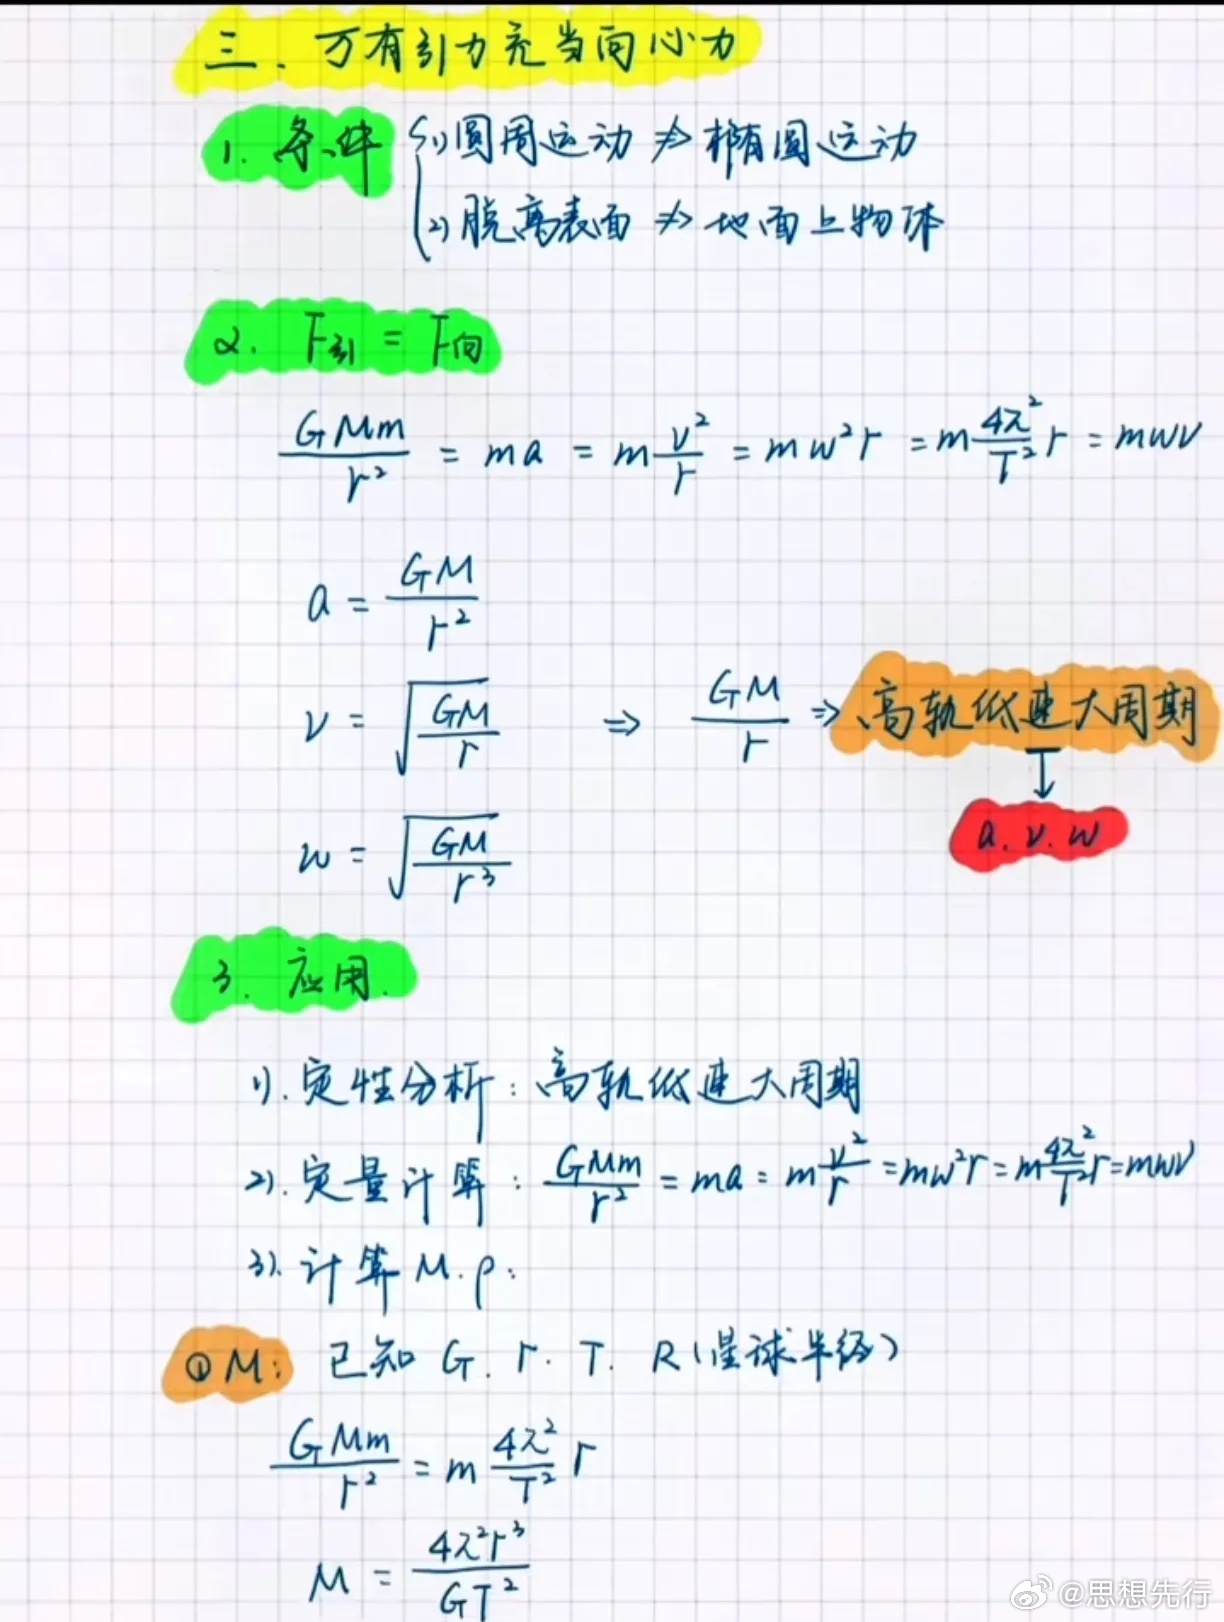 三、万有引力充当向心力
1. 条件 { (1) 圆周运动 ≠> 椭圆运动
(2) 脱离表面 ≠> 地面上物体
2. F引 = F向
GMm/r² = ma = m v²/r = mw²r = m 4π²/T² r = mwv
a = GM/r²
v = √(GM/r) ⇒ GM/r ⇒ 高轨低速大周期
↓
a. v. w
w = √(GM/r³)
3. 应用.
1). 定性分析: 高轨低速大周期
2). 定量计算: GMm/r² = ma = m v²/r = mw²r = m 4π²/T² r = mwv
3). 计算 M. ρ:
① M: 已知 G. r. T. R(星球半径)
GMm/r² = m 4π²/T² r
M = 4π²r³/GT²
@思想先行